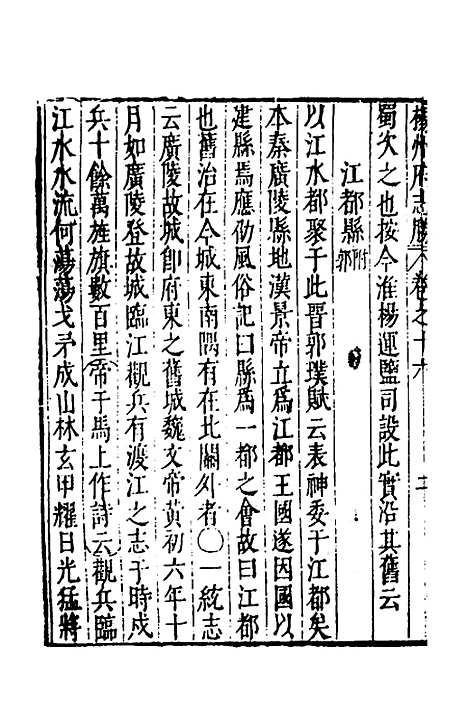 揚州府志勝 卷之十六
蜀次之也按今淮楊運鹽司設此實沿其舊云
江都縣附郭
以江水都聚于此晉郭璞賦云表神委于江都矣
本秦廣陵縣地漢景帝立爲江都王國遂因國以
建縣焉應劭風俗記曰縣爲一都之會故曰江都
也舊治在今城東南隅有在北關外者〇一統志
云廣陵故城卽府東之舊城魏文帝黃初六年十
月如廣陵登故城臨江觀兵有渡江之志于時戍
兵十餘萬旌旗數百里帝于馬上作詩云觀兵臨
江水水流何蕩蕩戈矛成山林玄甲耀日光猛將